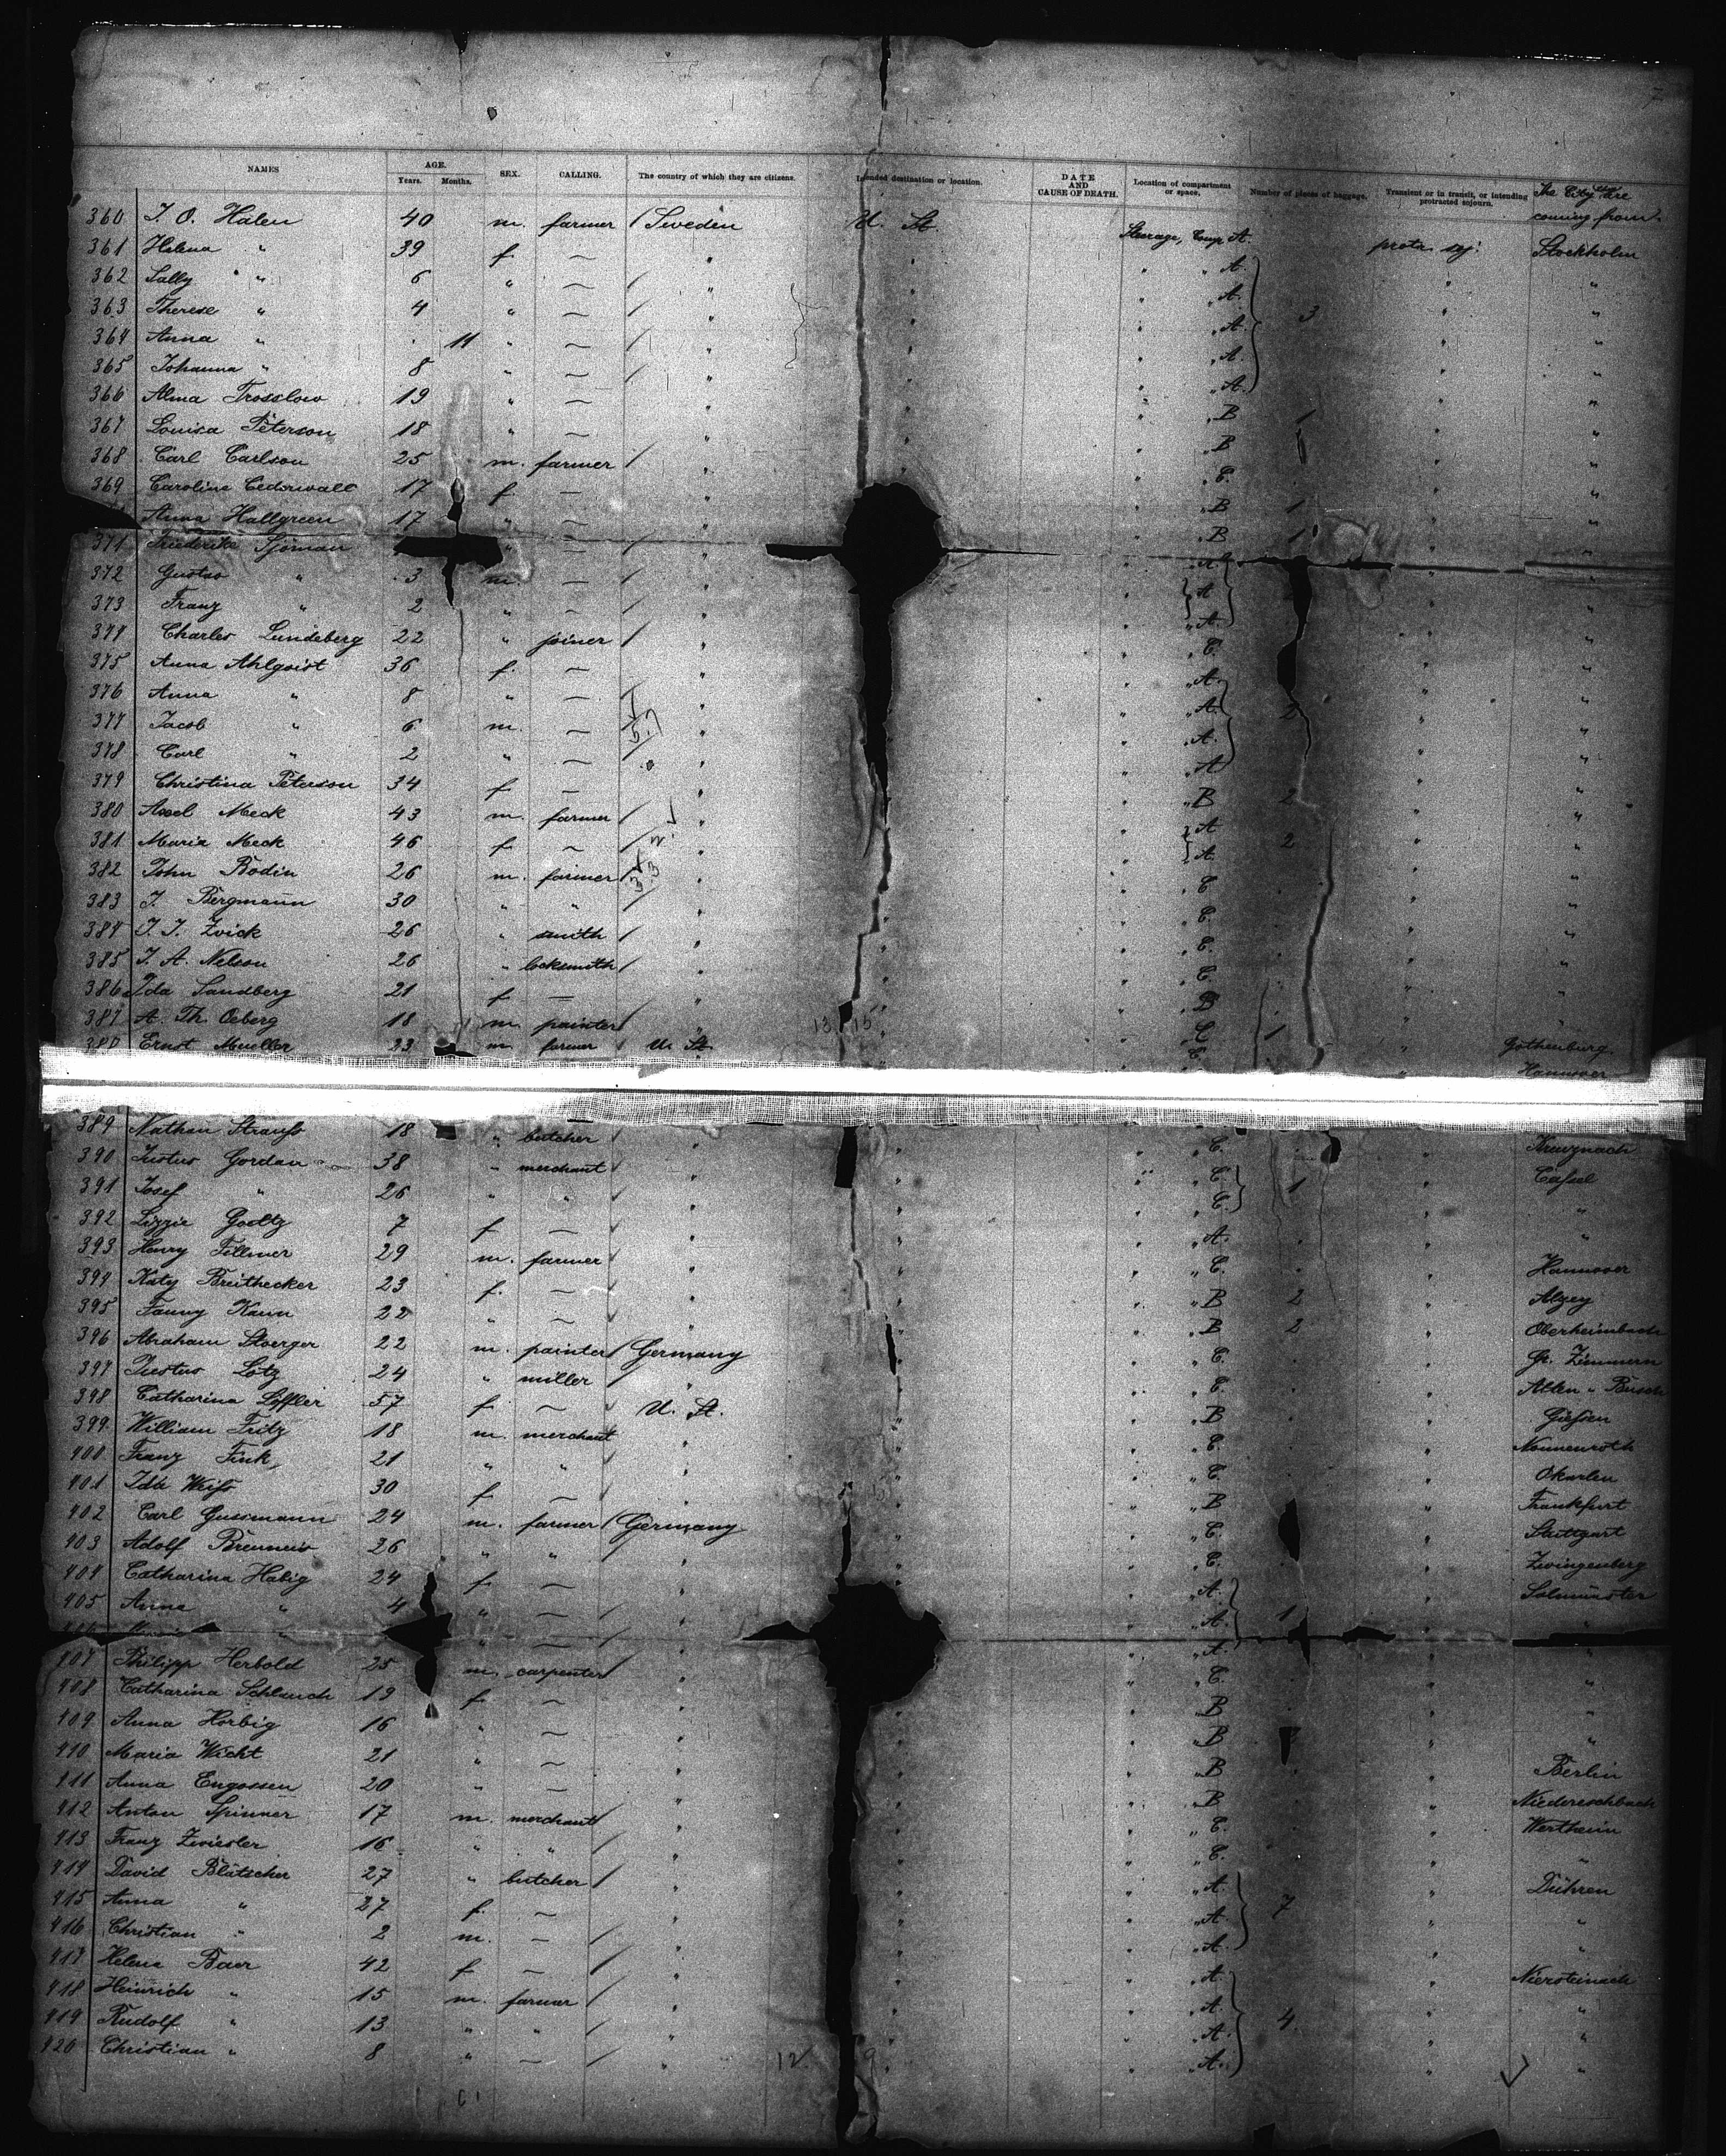 7
NAMES AGE. Years. Months. SEX. CALLING. The country of which they are citizens. Intended destination or location. DATE AND CAUSE OF DEATH. Location of compartment or space. Number of pieces of baggage. Transient or in transit, or intending protracted sojourn. The City they are coming from.
360 J. O. Halen 40 m. farmer Sweden U. St. Steerage, Comp. A. protr. soj. Stockholm
361 Helena " 39 f. — " " " " A. " "
362 Sally " 6 " — " " " " A. " "
363 Therese " 4 " — " " " " A. 3 " "
364 Anna " 11 " — " " " " A. " "
365 Johanna " 8 " — " " " " A. " "
366 Alma Trosslow 19 " — " " " " B 1 " "
367 Louisa Peterson 18 " — " " " " B 1 " "
368 Carl Carlson 25 m. farmer " " " " C. " "
369 Caroline Cederwall 17 f. — " " " " B 1 " "
Anna Hallgreen 17 " — " " " " B 1 " "
371 Friederike Sjöman " — " " " " A " "
372 Gustav " 3 m. — " " " " A " "
373 Franz " 2 " — " " " " A. " "
374 Charles Lundeberg 22 " joiner " " " " C. " "
375 Anna Ahlqvist 36 f. — " " " " A. " "
376 Anna " 8 " — " " " " A. 2 " "
377 Jacob " 6 m. — " " " " A. " "
378 Carl " 2 " — " " " " A " "
379 Christina Peterson 34 f. — " " " " B 2 " "
380 Axel Meck 43 m. farmer " " " " A " "
381 Maria Meck 46 f. — " " " " A. 2 " "
382 John Bodin 26 m. farmer " " " " C " "
383 J. Bergmann 30 " " " " " " C. " "
384 J. J. Zvick 26 " smith " " " " C. " "
385 J. A. Nelson 26 " locksmith " " " " C. " "
386 Ida Sandberg 21 f. — " " " " B " "
387 A. Th. Oeberg 18 m. painter " " " " C 1 " Gothenburg
388 Ernst Mueller 23 m. farmer U. St. " " " C. " Hannover
389 Nathan Strauss 18 " butcher " " " " C. " Kreuznach
390 Justus Gordan 38 " merchant " " " " C. 1 " Cassel
391 Josef " 26 " " " " " " C. " "
392 Lizzie Goeltz 7 f. — " " " " A. " "
393 Henry Fillmer 29 m. farmer " " " " C. " Hannover
394 Katy Breithecker 23 f. — " " " " B 2 " Alzey
395 Fanny Kann 22 " — " " " " B 2 " Oberheimbach
396 Abraham Stoerger 22 m. painter Germany " " " C. " Gr. Zimmern
397 Justus Lotz 24 " miller " " " " C. " Alten Buseck
398 Catharina Löffler 57 f. — U. St. " " " B " Giessen
399 William Fritz 18 m. merchant " " " " C. " Nonnenroth
400 Franz Fink 21 " " " " " " C. " Okarlen
401 Ida Weiss 30 f. — " " " " B " Frankfurt
402 Carl Gussmann 24 m. farmer Germany " " " C. " Stuttgart
403 Adolf Brenneis 26 " " " " " " C. " Zwingenberg
404 Catharina Habig 24 f. — " " " " A. " Salmünster
405 Anna " 4 " — " " " " A. 1 "
" " — " " " A. " "
407 Philipp Herbold 25 m. carpenter " " " C. " "
408 Catharina Schlauch 19 f. — " " " B " "
409 Anna Horbig 16 " — " " " B " "
410 Maria Wicht 21 " — " " " " B " Berlin
411 Anna Engossen 20 " — " " " " B " Niedereschbach
412 Anton Spinner 17 m. merchant " " " " C. " Wertheim
413 Franz Zwiesler 16 " " " " " " C. " "
414 David Blätscher 27 " butcher " " " " A. " Dühren
415 Anna " 27 f. — " " " " A. 7 " "
416 Christian " 2 m. — " " " " A. " "
417 Helena Baer 42 f. — " " " " A. " Niersteinach
418 Heinrich " 15 m. farmer " " " " A. " "
419 Rudolf " 13 " " " " " " A. 4. " "
420 Christian " 8 " — " " " " A. " "
12 9